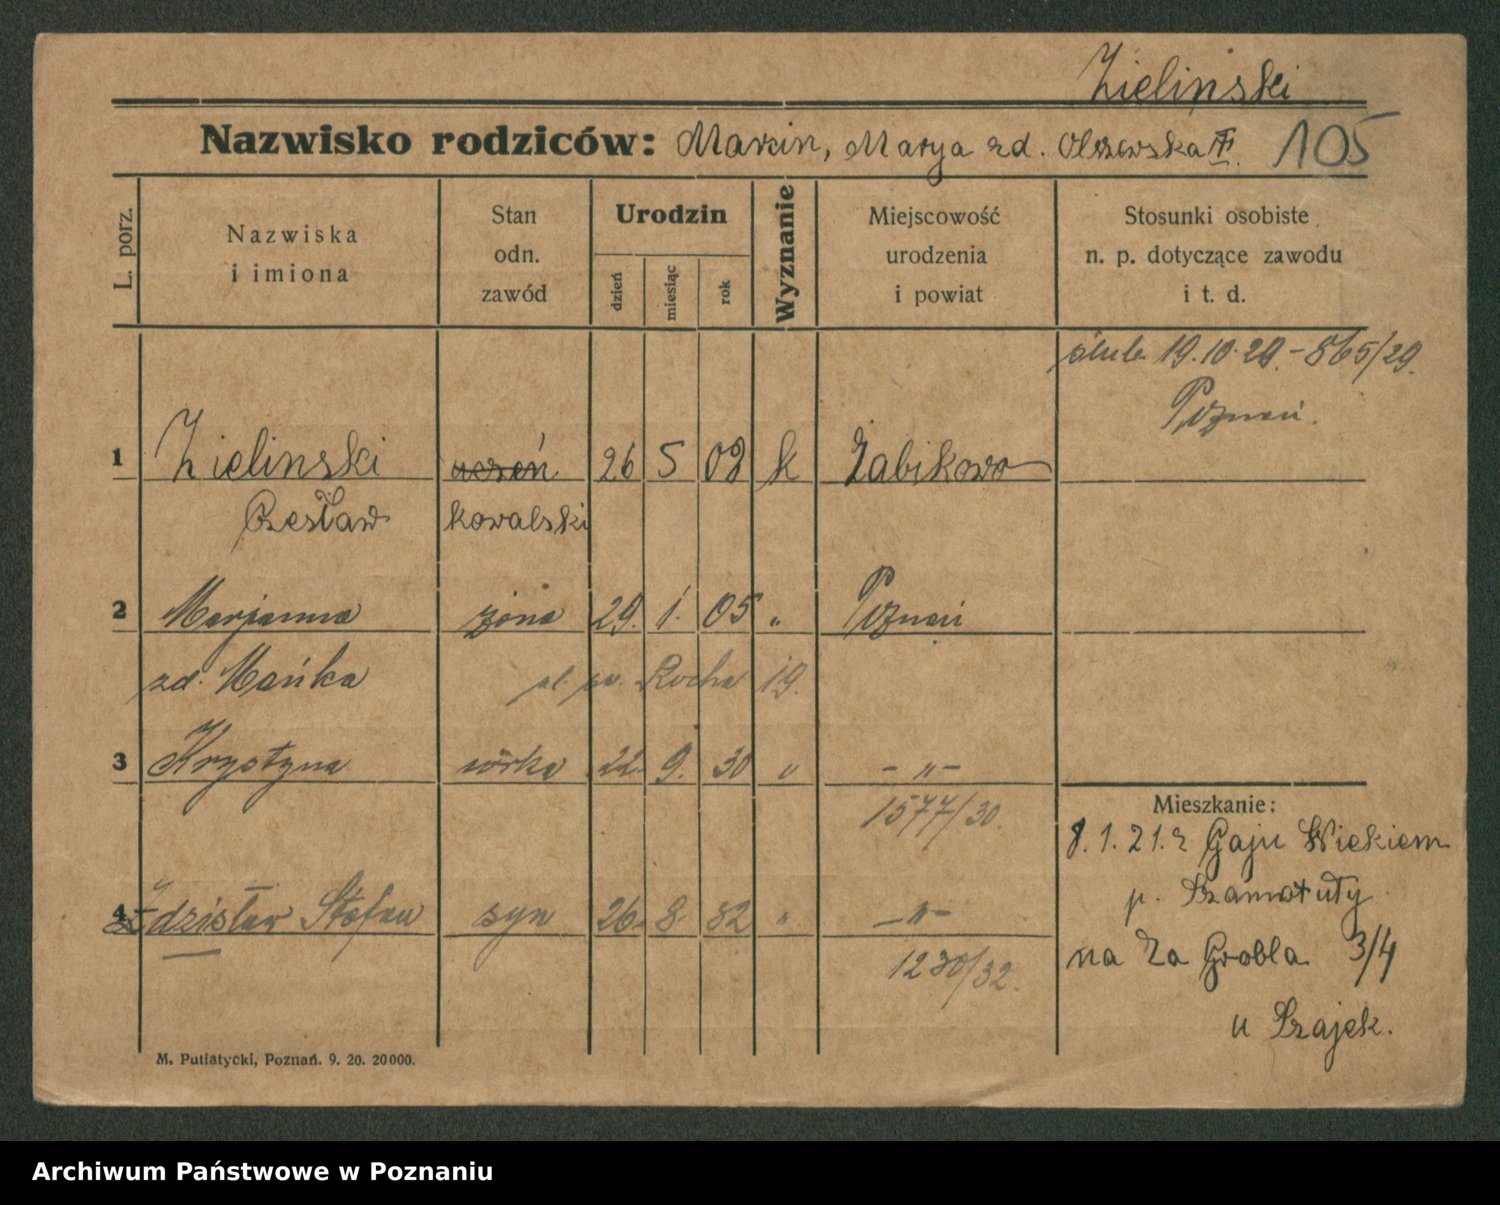 Zieliński
Nazwisko rodziców: Marcin, Marya zd. Olszewska 105
L. porz.
Nazwiska i imiona
Stan odn. zawód
Urodzin
dzień miesiąc rok
Wyznanie
Miejscowość urodzenia i powiat
Stosunki osobiste n. p. dotyczące zawodu i t. d.
ślub 19.10.29. – 865/29.
Poznań.
1 Zielinski uczeń 26 5 08 k Żabikowo
Czesław kowalski
2 Marjanna żona 29. 1. 05 " Poznań
zd. Mańka pl. św. Rocha 19.
3 Krystyna córka 22. 9. 30 " – " –
1577/30.
4 Zdzisław Stefan syn 26. 8 32 " – " –
1230/32.
Mieszkanie:
8.1.21. z Gaju Wielkiem
p. Szamotuły
na Za Groblą 3/4
u Szajek.
M. Putiatycki, Poznań. 9. 20. 20000.
Archiwum Państwowe w Poznaniu